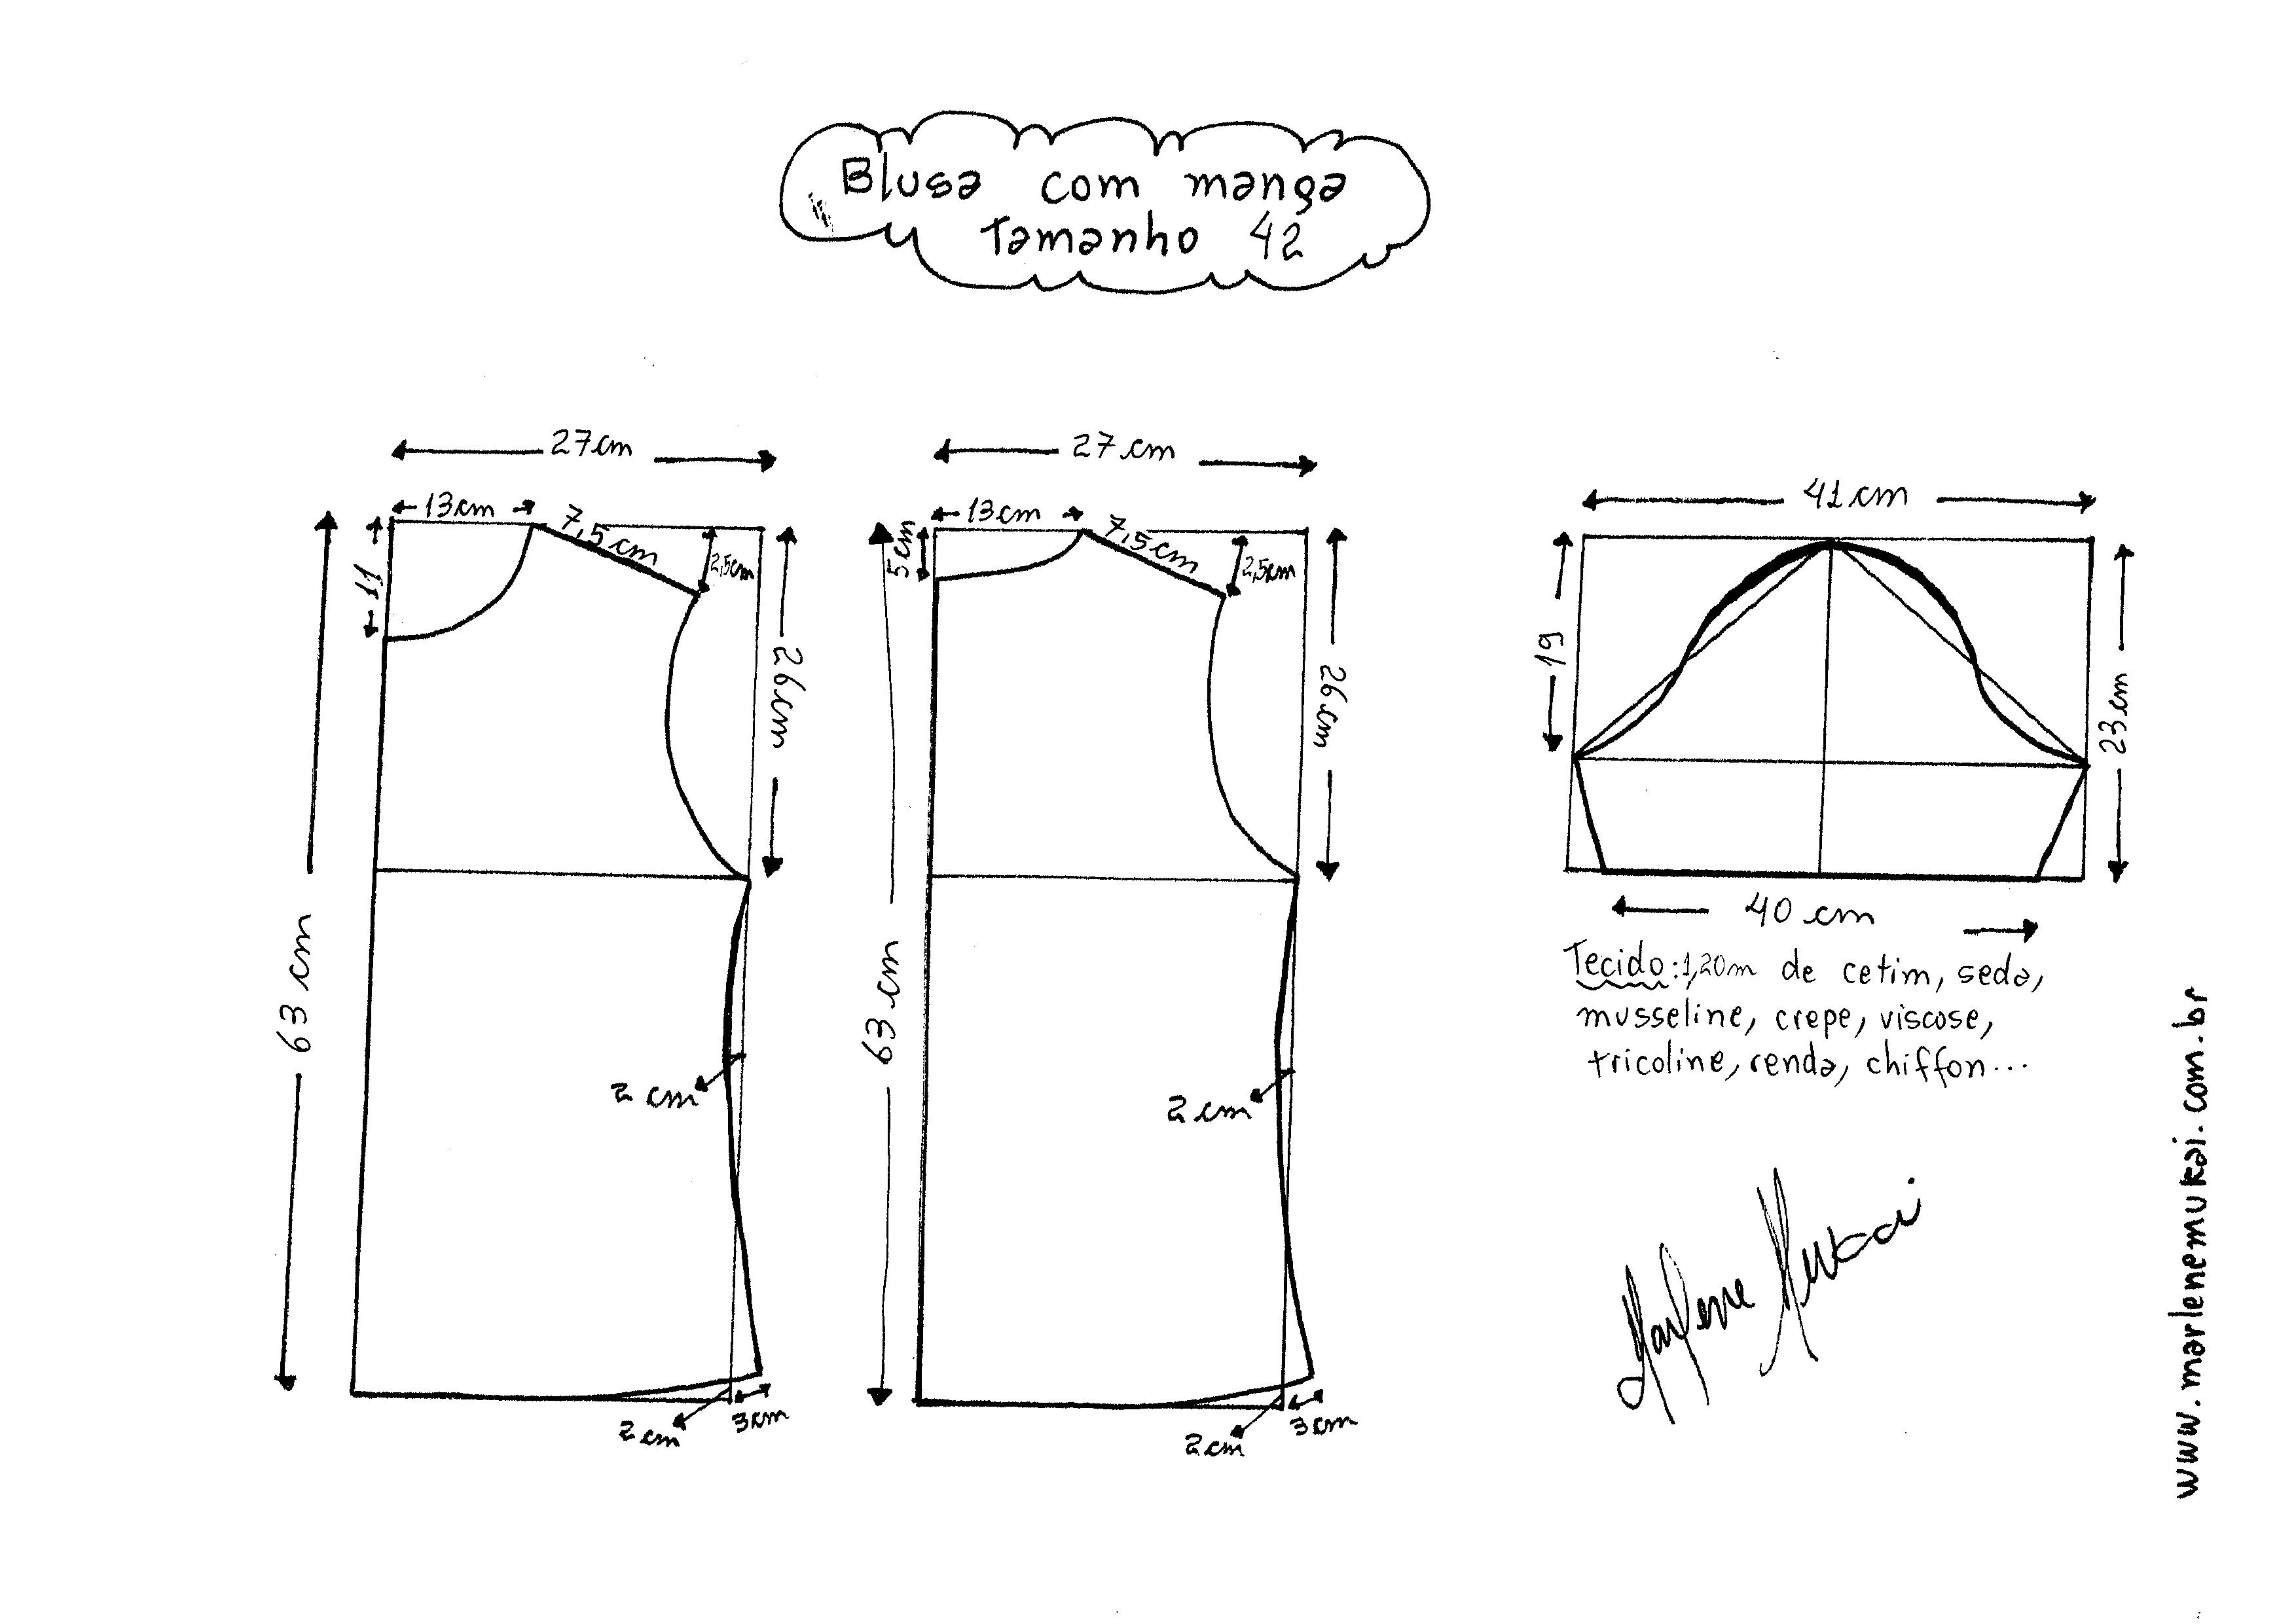 Blusa com manga
Tamanho 42
27cm
13cm
7,5cm
2,5cm
11
26cm
63 cm
2 cm
2cm
3cm
27cm
13cm
7,5cm
2,5cm
5cm
26cm
63 cm
2 cm
2cm
3cm
41cm
19
23cm
40 cm
Tecido: 1,20m de cetim, seda,
musseline, crepe, viscose,
tricoline, renda, chiffon...
Marlene Mukai
www.marlenemukai.com.br